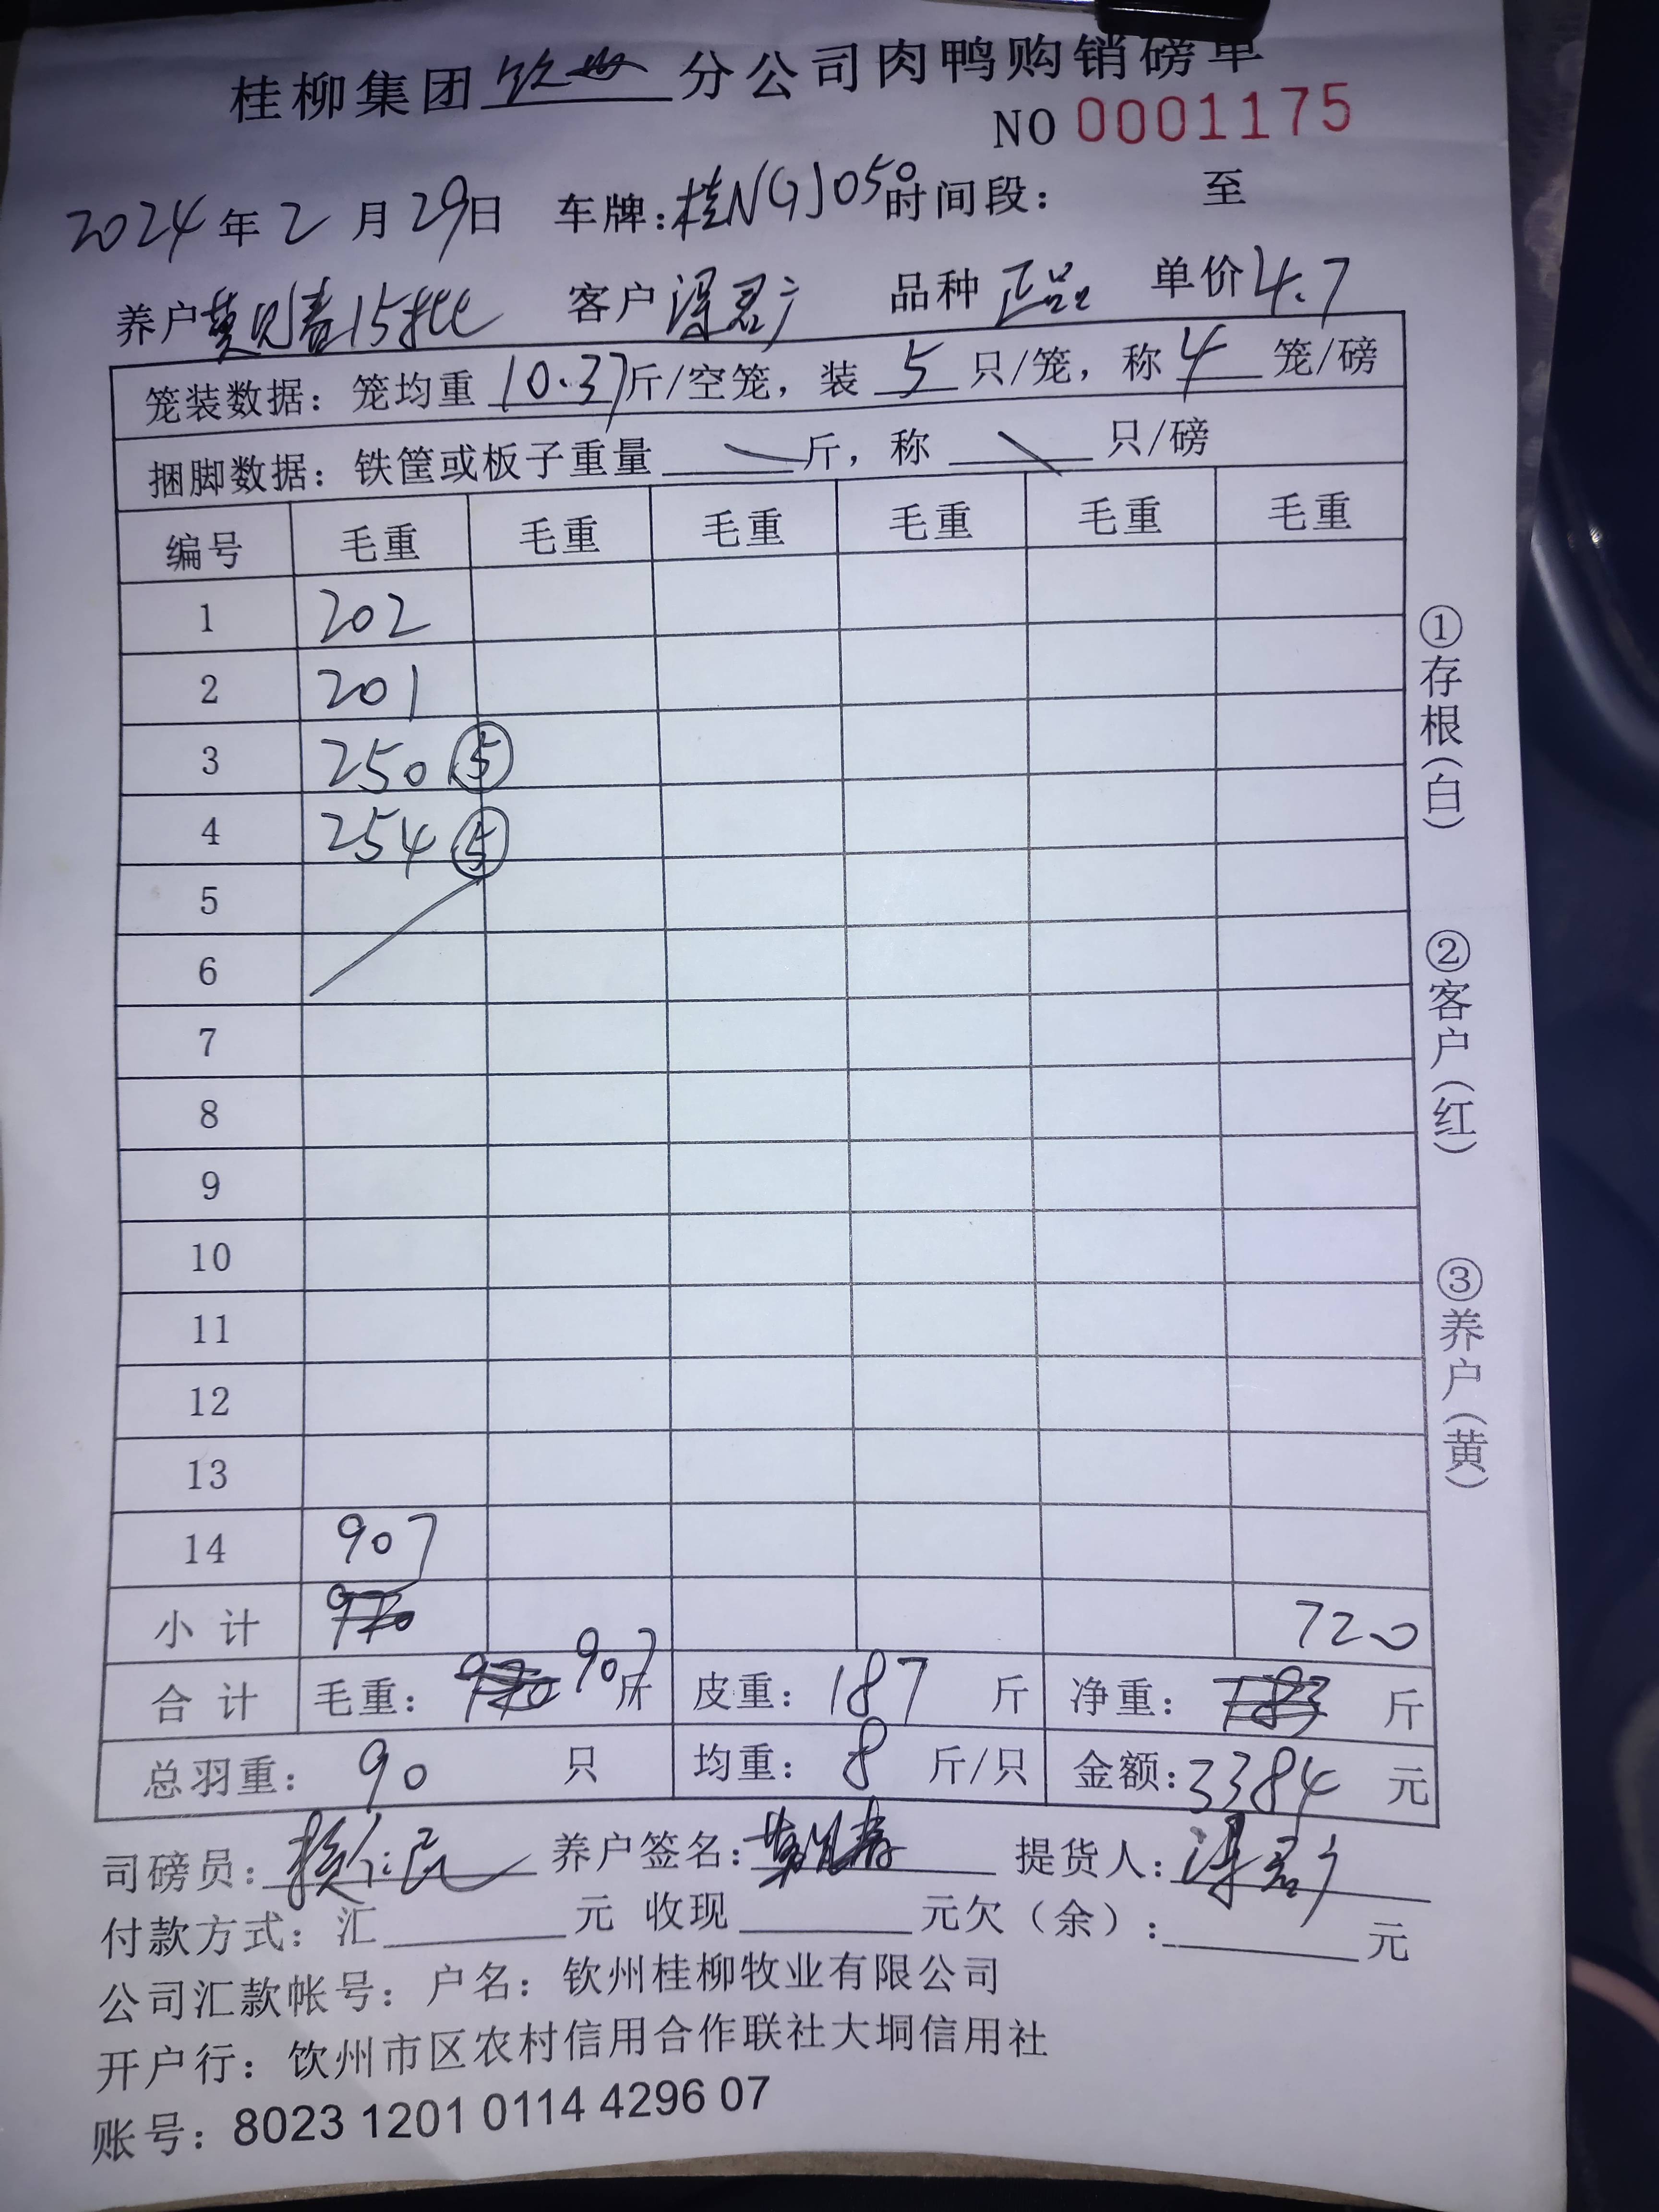 桂柳集团钦州分公司肉鸭购销磅单
NO 0001175
2024年2月29日 车牌:桂NGJ050 时间段: 至
养户 春15批 客户 君广 品种 正品 单价 4.7
笼装数据: 笼均重 10.37斤/空笼, 装 5 只/笼, 称 4 笼/磅
捆脚数据: 铁筐或板子重量 斤, 称 只/磅
编号 毛重 毛重 毛重 毛重 毛重 毛重
1 202
2 201
3 250 ⑤
4 254 ⑤
5
6
7
8
9
10
11
12
13
14 907
小计 970 720
合计 毛重: 970 907斤 皮重: 187 斤 净重: 783 斤
总羽重: 90 只 均重: 8 斤/只 金额:3384 元
司磅员: 民 养户签名: 春 提货人: 君广
付款方式: 汇 元 收现 元欠(余): 元
公司汇款帐号: 户名: 钦州桂柳牧业有限公司
开户行: 饮州市区农村信用合作联社大垌信用社
账号: 8023 1201 0114 4296 07
①存根(白)
②客户(红)
③养户(黄)